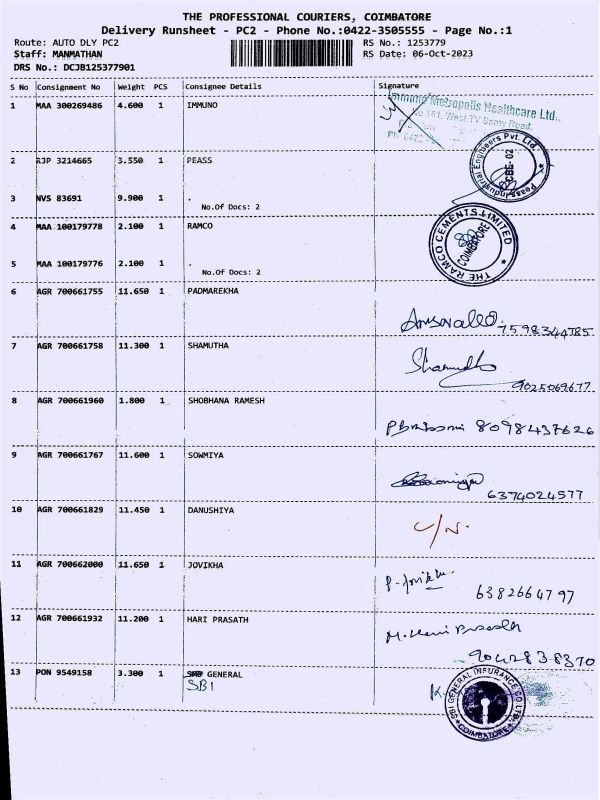 THE PROFESSIONAL COURIERS, COIMBATORE
Delivery Runsheet - PC2 - Phone No.:0422-3505555 - Page No.:1
Route: AUTO DLY PC2
RS No.: 1253779
Staff: MANMATHAN
RS Date: 06-Oct-2023
DRS No.: DCJB125377901
S No Consignment No Weight PCS Consignee Details Signature
1 MAA 300269486 4.600 1 IMMUNO
Immuno Metropolis Healthcare Ltd.,
No.161, West TV Samy Road,
2 RJP 3214665 3.550 1 PEASS
Peass Industrial Engineers Pvt. Ltd.
CBE-02
3 NVS 83691 9.900 1 .
No.Of Docs: 2
4 MAA 100179778 2.100 1 RAMCO
THE RAMCO CEMENTS LIMITED
COIMBATORE
5 MAA 100179776 2.100 1 .
No.Of Docs: 2
6 AGR 700661755 11.650 1 PADMAREKHA
7598344785
7 AGR 700661758 11.300 1 SHAMUTHA
9025069677
8 AGR 700661960 1.800 1 SHOBHANA RAMESH
8098437626
9 AGR 700661767 11.600 1 SOWMIYA
6374024577
10 AGR 700661829 11.450 1 DANUSHIYA
11 AGR 700662000 11.650 1 JOVIKHA
6382664797
12 AGR 700661932 11.200 1 HARI PRASATH
M. Hari Prasath
9042838370
13 PON 9549158 3.300 1 GENERAL
SBI
SBI GENERAL INSURANCE CO LTD
COIMBATORE